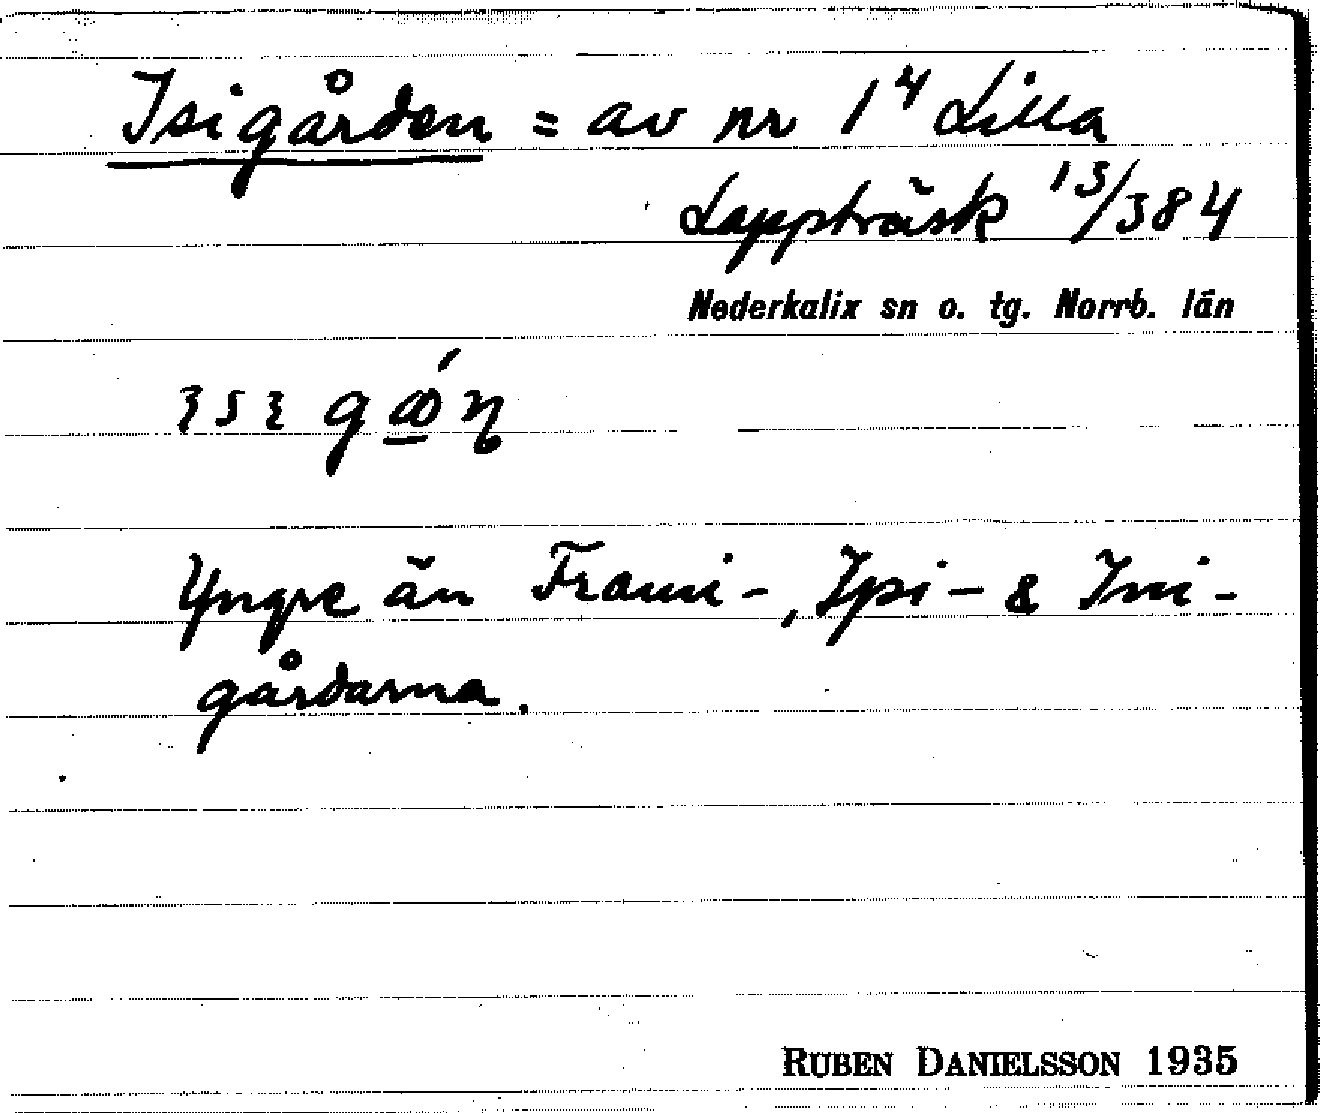 Isigården = av nr 1⁴ Lilla
Lappträsk 13/384
Nederkalix sn o. tg. Norrb. län
Yngre än Frami-, Ypi- & Imi-
gårdarna.
RUBEN DANIELSSON 1935